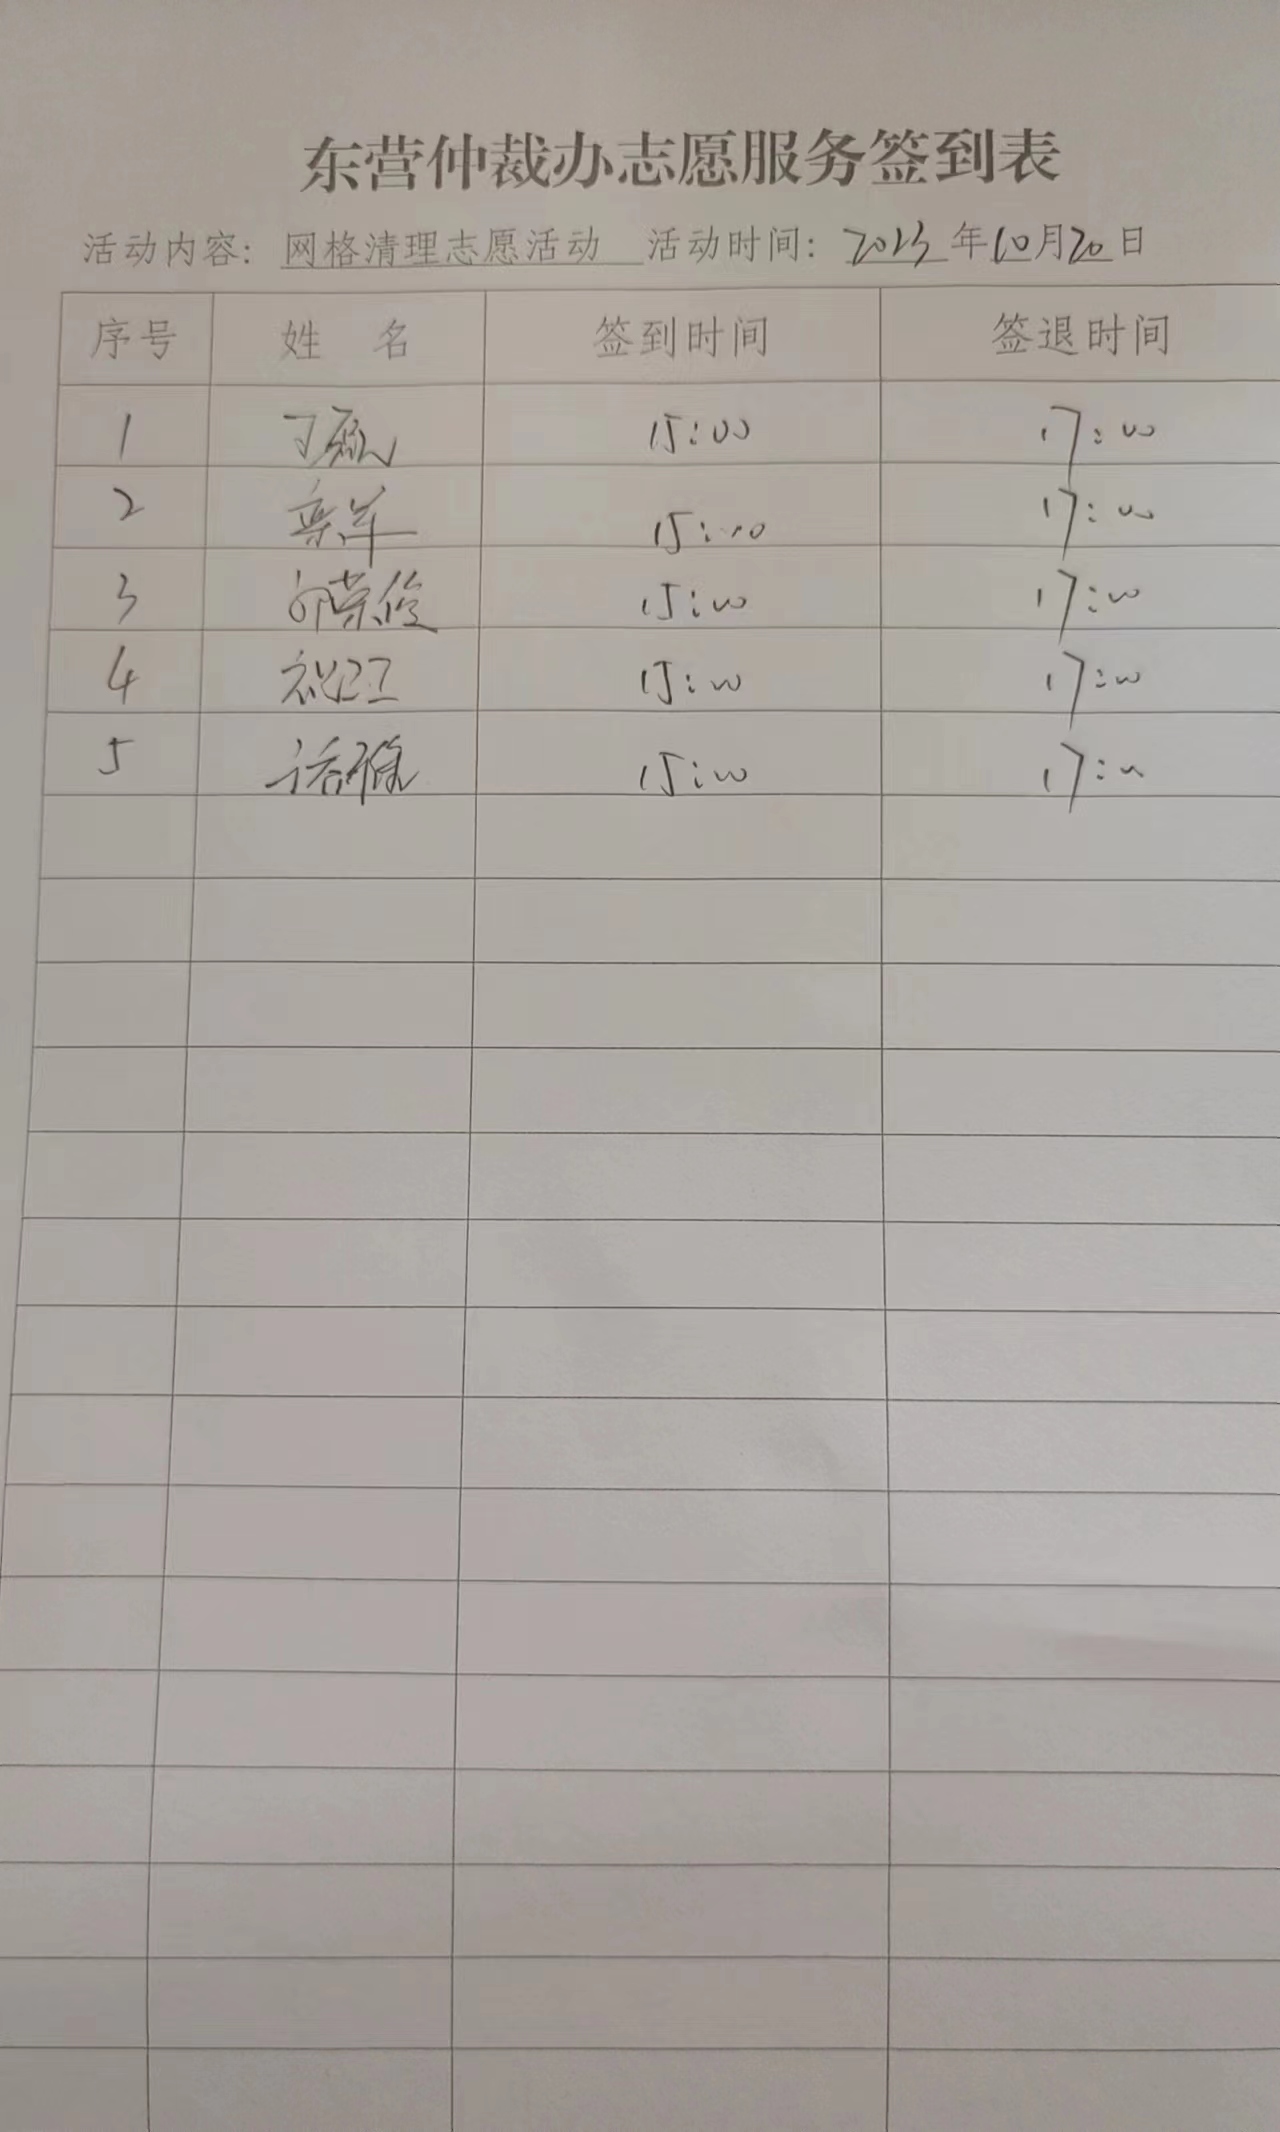 东营仲裁办志愿服务签到表
活动内容: 网格清理志愿活动 活动时间: 2023年10月20日
序号 姓 名 签到时间 签退时间
1 15:00 17:00
2 15:00 17:00
3 15:00 17:00
4 15:00 17:00
5 15:00 17:00